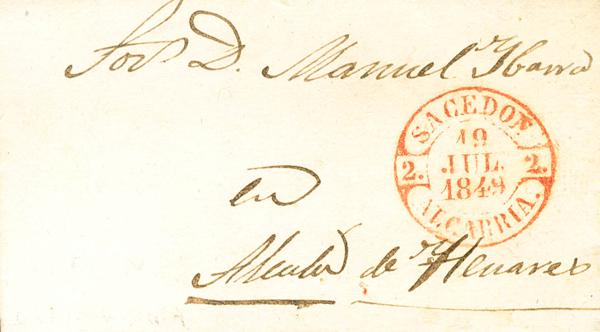 Sor. D. Manuel Ybarra
SACEDON
19
JUL.
1849
2. 2.
ALCARRIA.
en
Alcalá de Henares